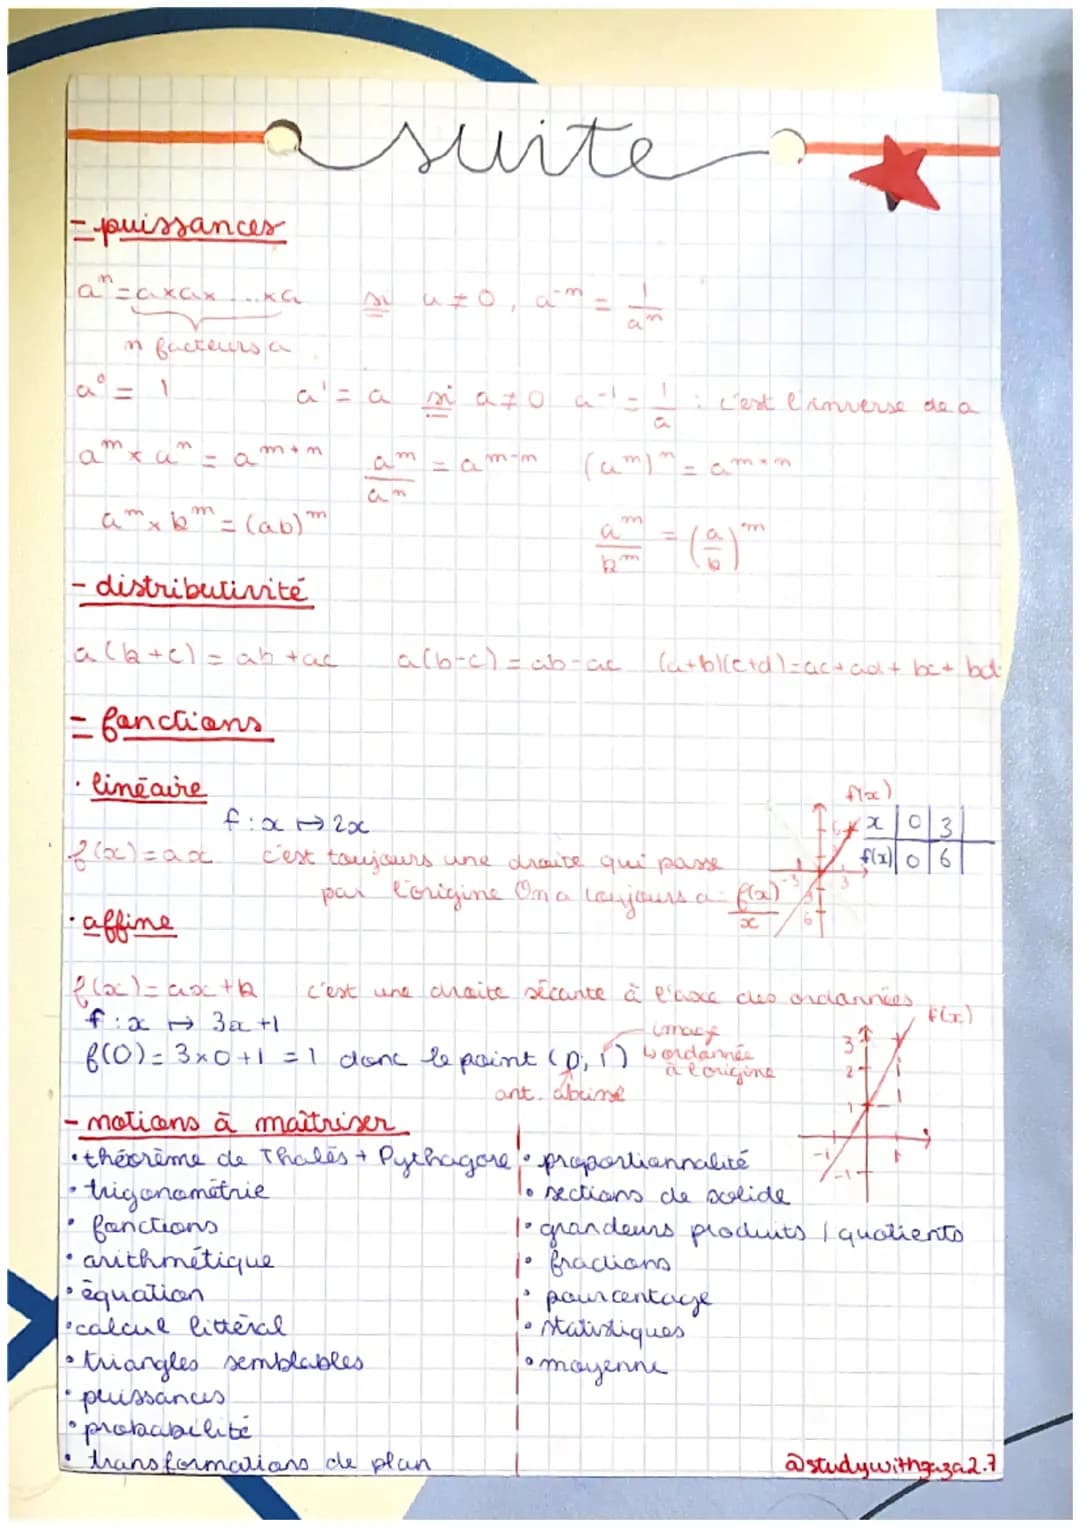 suite
- puissances
aⁿ = a×a×...×a    si a ≠ 0, a⁻ⁿ = 1/aⁿ
n facteurs a
a⁰ = 1    a¹ = a    si a ≠ 0 a⁻¹ = 1/a : c'est l'inverse de a
aᵐ × aⁿ = aᵐ⁺ⁿ    aᵐ/aⁿ = aᵐ⁻ⁿ    (aᵐ)ⁿ = aᵐˣⁿ
aᵐ × bᵐ = (ab)ᵐ    aᵐ/bᵐ = (a/b)ᵐ
- distributivité
a(b+c) = ab+ac    a(b-c) = ab-ac    (a+b)(c+d)=ac+ad+bc+bd
- fonctions
· linéaire
f : x ↦ 2x
f(x) = ax    c'est toujours une droite qui passe
par l'origine On a toujours a = f(x)/x
f(x)
x | 0 | 3
f(x) | 0 | 6
6
-3 3
6
· affine
f(x) = ax+b    c'est une droite sécante à l'axe des ordonnées
f : x ↦ 3x+1
f(0) = 3×0+1 = 1 donc le point (0; 1)
image
↳ ordonnée
à l'origine
ant. abcisse
f(x)
3
2
1
-1 1
-1
- notions à maîtriser
• théorème de Thalès + Pythagore
• trigonométrie
• fonctions
• arithmétique
• équation
• calcul littéral
• triangles semblables
• puissances
• probabilité
• transformations de plan
• proportionnalité
• sections de solide
• grandeurs produits / quotients
• fractions
• pourcentage
• statistiques
• moyenne
@studywithzaza2.7